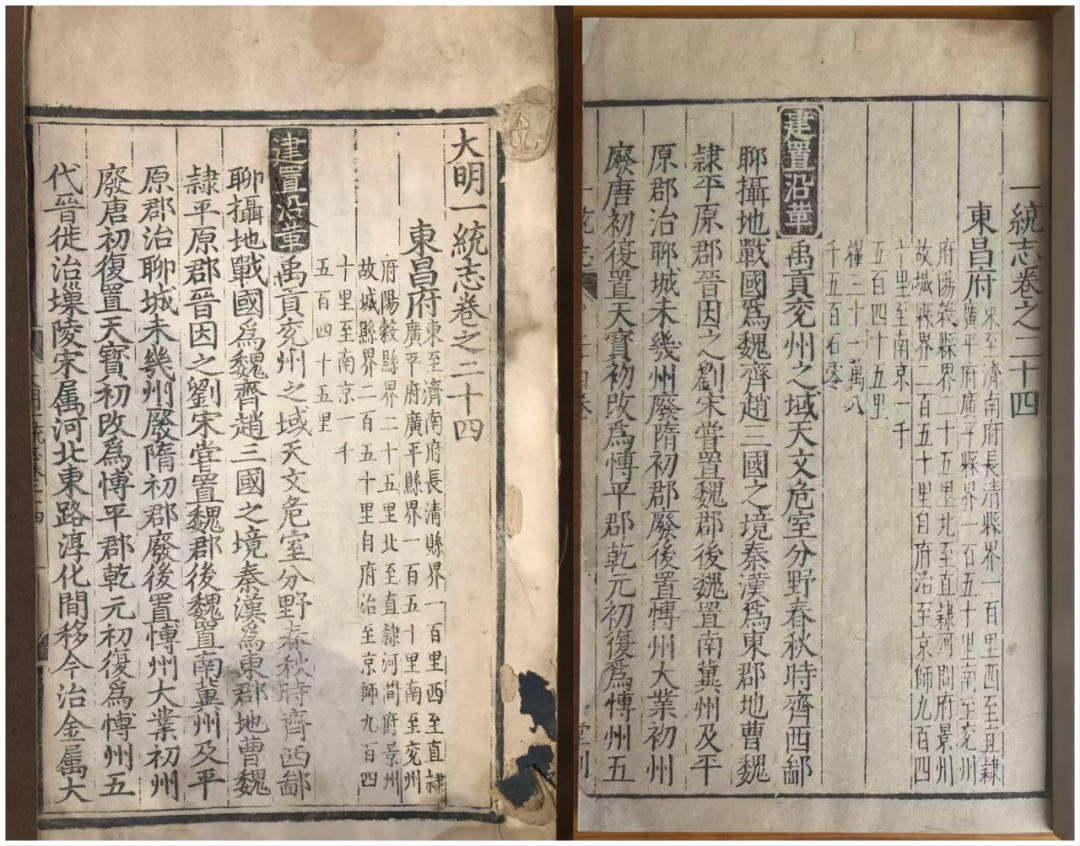 大明一統志卷之二十四
東昌府
東至濟南府長清縣界一百里西至直隸
廣平府廣平縣界一百五十里南至兗州
府陽穀縣界二十五里北至直隸河間府景州
故城縣界二百五十里自府治至京師九百四
十里至南京一千
五百四十五里
建置沿革
禹貢兗州之域天文危室分野春秋時齊西鄙
聊攝地戰國爲魏齊趙三國之境秦漢爲東郡地曹魏
隷平原郡晉因之劉宋甞置魏郡後魏置南冀州及平
原郡治聊城未幾州廢隋初郡廢後置愽州大業初州
廢唐初復置天寶初改爲愽平郡乾元初復爲愽州五
代晉徙治壖陵宋属河北東路淳化間移今治金属大
一統志卷之二十四
東昌府
東至濟南府長清縣界一百里西至直隸
廣平府廣平縣界一百五十里南至兗州
府陽穀縣界二十五里北至直隸河間府景州
故城縣界二百五十里自府治至京師九百四
十里至南京一千
五百四十五里
糧三十一萬八
千五百石零
建置沿革
禹貢兗州之域天文危室分野春秋時齊西鄙
聊攝地戰國爲魏齊趙三國之境秦漢爲東郡地曹魏
隷平原郡晉因之劉宋甞置魏郡後魏置南冀州及平
原郡治聊城未幾州廢隋初郡廢後置愽州大業初州
廢唐初復置天寶初改爲愽平郡乾元初復爲愽州五